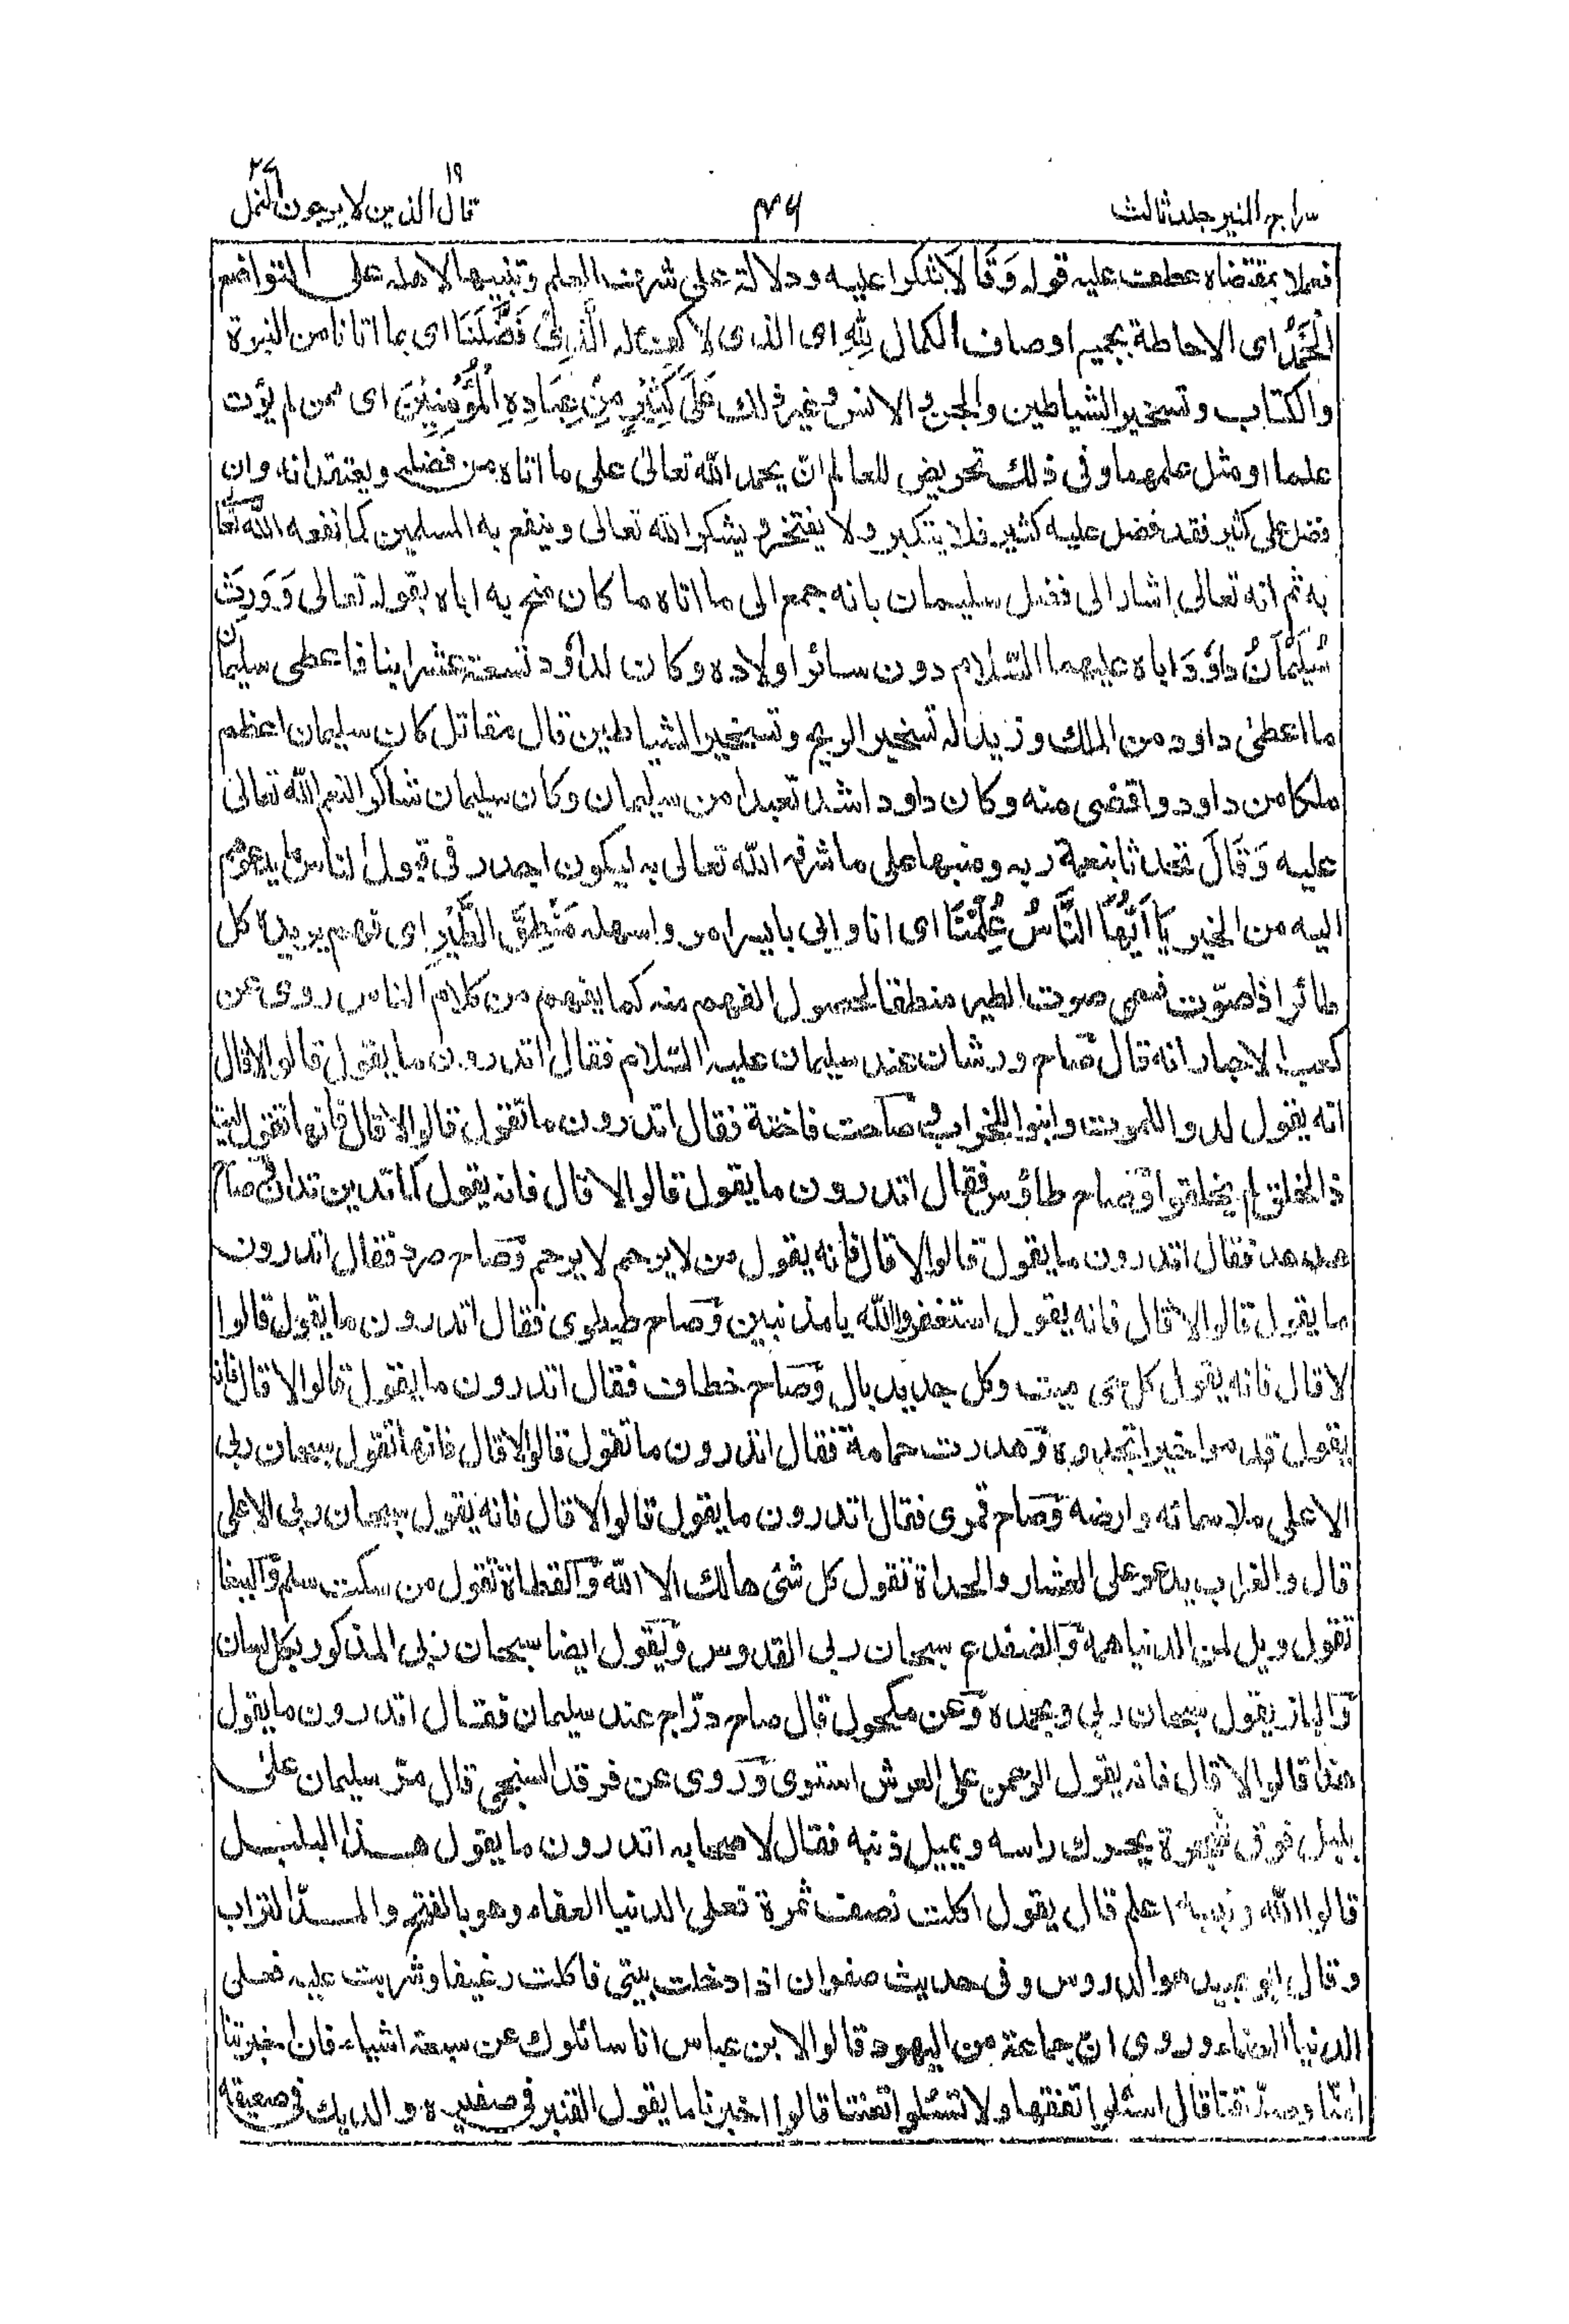 سراج المنير جلد ثالث
٤٦
قال الذين لا يرجون ١٩ النمل ٢٧
فعملا بمقتضاه عطف عليه قوله وَقَالَا شكرا عليه ودلالة على شرف العلم وتنبيها لاهله على التواضع
اَلْحَمْدُ اى الاحاطة بجميع اوصاف الكمال لِلّٰهِ اى الذى لا كفء له الَّذِىْ فَضَّلَنَا اى بما اتانا من النبوة
والكتاب وتسخير الشياطين والجن والانس وغير ذلك عَلٰى كَثِيْرٍ مِّنْ عِبَادِهِ الْمُؤْمِنِيْنَ اى ممن لم يؤت
علما او مثل علمهما وفى ذلك تحريض للعالم انّ يحمد الله تعالى على ما اتاه من فضله ويعتقد انه وان
فضل على كثير فقد فضل عليه كثير فلا يتكبر ولا يفتخر ويشكر الله تعالى وينفع به المسلمين كما نفعه الله تعا
به ثم انه تعالى اشار الى فضل سليمان بانه جمع الى ما اتاه ما كان منح به اباه بقوله تعالى وَوَرِثَ
سُلَيْمٰانُ دَاوٗدَ اباه عليهما السّلام دون سائر اولاده وكان لداؤد تسعة عشر ابنا فاعطى سليمان
ما اعطى داود من الملك وزيد له تسخير الريح وتسخير الشياطين قال مقاتل كان سليمان اعظم
ملكا من داود واقضى منه وكان داود اشد تعبدا من سليمان وكان سليمان شاكرا لنعم الله تعالى
عليه وَقَالَ تحدثا بنعمة ربه ومنبها على ما شرفه الله تعالى به ليكون اجدر فى قبول الناس ما يدعوهم
اليه من الخير يَا اَيُّهَا النَّاسُ عُلِّمْنَا اى انا وابى بايسر امر واسهله مَنْطِقَ الطَّيْرِ اى فهم يريده كل
طائر اذا صوّت فسمى صوت الطير منطقا لحصول الفهم منه كما يفهم من كلام الناس روى عن
كعب الاحبار انه قال صاح ورشان عند سليمان عليه السّلام فقال اتدرون ما يقول قالوا لا قال
انه يقول لدوا للموت وابنوا للخراب وصاحت فاختة فقال اتدرون ما تقول قالوا لا قال فانها تقول ليت
ذا الخلق لم يخلقوا وصاح طاؤس فقال اتدرون ما يقول قالوا لا قال فانه يقول كما تدين تدان وصاح
هدهد فقال اتدرون ما يقول قالوا لا قال فانه يقول من لا يرحم لا يرحم وصاح صرد فقال اتدرون
ما يقول قالوا لا قال فانه يقول استغفروا الله يا مذنبين وصاح طيطوى فقال اتدرون ما يقول قالوا
لا قال فانه يقول كل حى ميت وكل جديد بال وصاح خطاف فقال اتدرون ما يقول قالوا لا قال فانه
يقول قدموا خيرا تجدوه وهدرت حمامة فقال اتدرون ما تقول قالوا لا قال فانها تقول سبحان ربى
الاعلى ملا سمائه وارضه وصاح قمرى فقال اتدرون ما يقول قالوا لا قال فانه يقول سبحان ربى الاعلى
قال والغراب يدعو على العشار والحداة تقول كل شئ هالك الا الله والقطاة تقول من سكت سلم والببغا
تقول ويل لمن الدنيا همه والضفدع سبحان ربى القدوس ويقول ايضا سبحان ربى المذكور بكل لسان
والباز يقول سبحان ربى وبحمده وعن مكحول قال صاح درّاج عند سليمان فقال اتدرون ما يقول
هذا قالوا لا قال فانه يقول الرحمن على العرش استوى وروى عن فرقد السنجى قال مرّ سليمان على
بلبل فوق شجرة يحرك راسه ويميل ذنبه فقال لاصحابه اتدرون ما يقول هذا البلبل
قالوا الله ونبيه اعلم قال يقول اكلت نصف ثمرة فعلى الدنيا العفاء وهو بالفتح والمدّ التراب
وقال ابو عبيد هو الدروس وفى حديث صفوان اذا دخلت بيتى فاكلت رغيفا وشربت عليه فعلى
الدنيا العفاء وروى انّ جماعة من اليهود قالوا لابن عباس انا سائلوك عن سبعة اشياء فان اخبرتنا
اٰمنّا وصدّقنا قال اسئلوا تفقها ولا تسئلوا تعنتا قالوا اخبرنا ما يقول القنبر فى صفيره والديك فى صعيقه